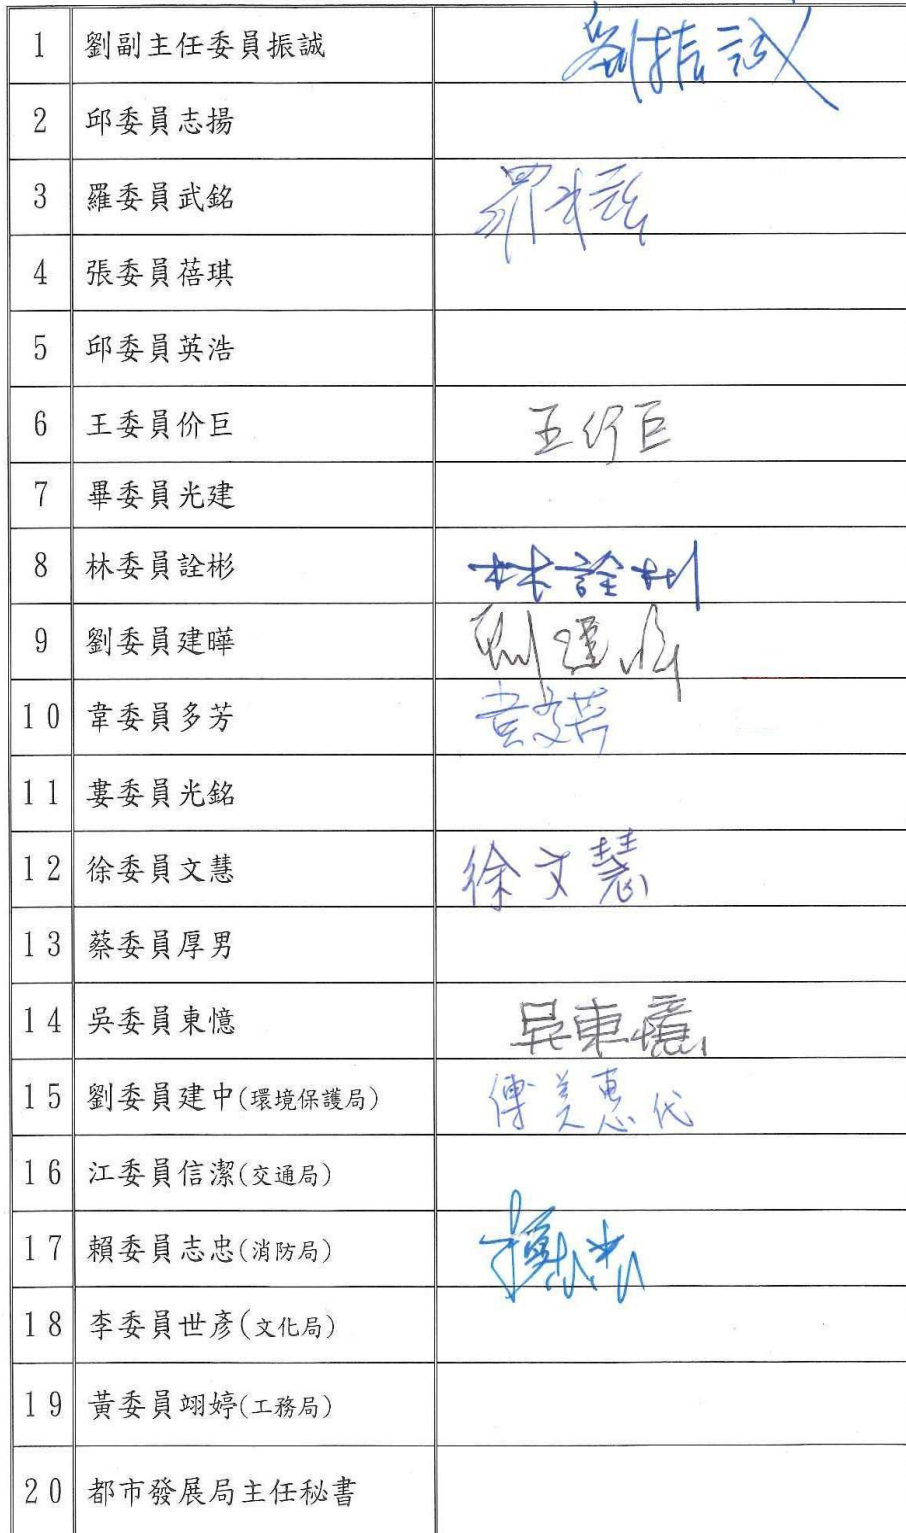 1 劉副主任委員振誠 劉振誠
2 邱委員志揚
3 羅委員武銘
4 張委員蓓琪
5 邱委員英浩
6 王委員价巨 王价巨
7 畢委員光建
8 林委員詮彬 林詮彬
9 劉委員建曄 劉建
10 韋委員多芳 韋多芳
11 婁委員光銘
12 徐委員文慧 徐文慧
13 蔡委員厚男
14 吳委員東憶 吳東憶
15 劉委員建中(環境保護局) 傅美惠代
16 江委員信潔(交通局)
17 賴委員志忠(消防局)
18 李委員世彥(文化局)
19 黃委員翊婷(工務局)
20 都市發展局主任秘書